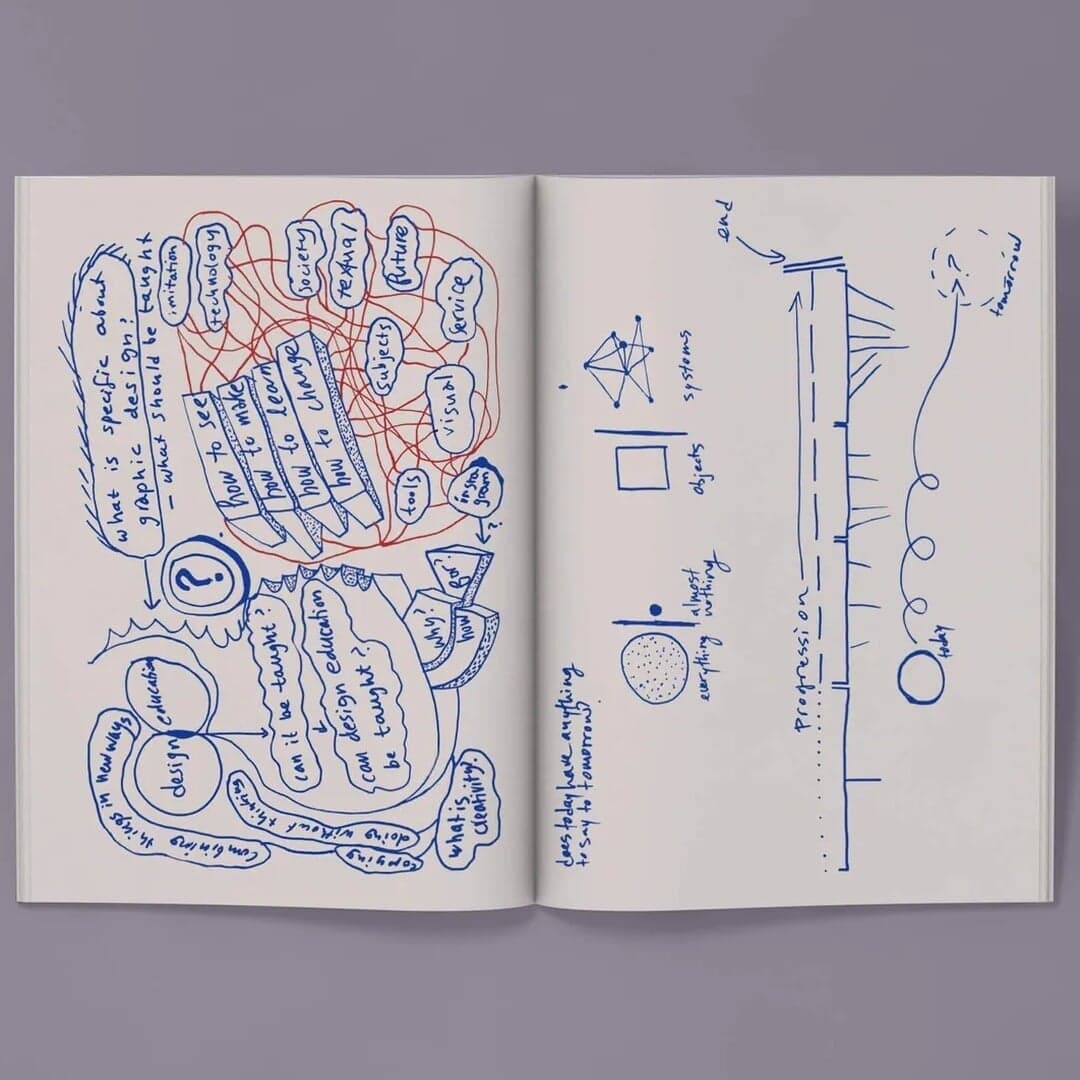 what is specific about
graphic design?
– what should be taught
imitation
technology
society
textual
future
service
subjects
visual
tools
insta
gram
?
how to see
how to make
how to learn
how to change
?
education
design
can it be taught?
can design education
be taught?
why?
for?
how
combining things in new ways
doing without thinking
copying
what is
creativity?
does today have anything
to say to tomorrow?
everything
almost
nothing
objects
systems
progression
end
today
?
tomorrow